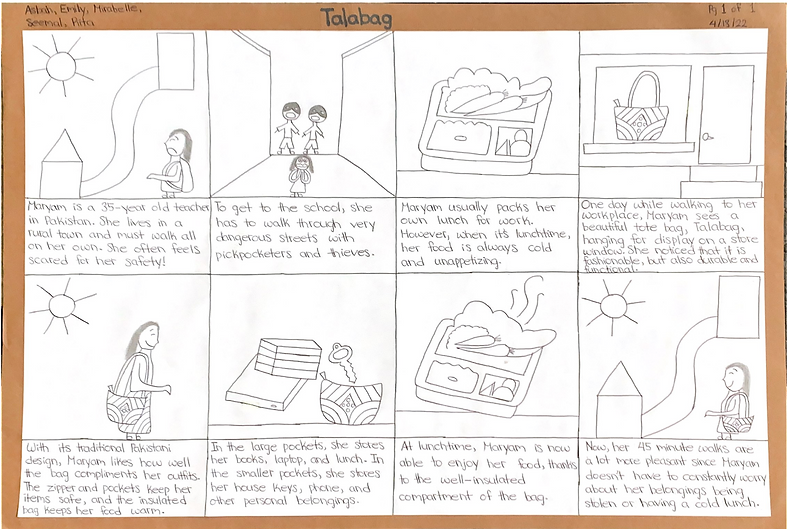 Asbah, Emily, Mirabelle,
Seemal, Rita
Talabag
Pg 1 of 1
4/13/22
Maryam is a 35-year old teacher
in Pakistan. She lives in a
rural town and must walk all
on her own. She often feels
scared for her safety!
To get to the school, she
has to walk through very
dangerous streets with
pickpocketers and thieves.
Maryam usually packs her
own lunch for work.
However, when it's lunchtime,
her food is always cold
and unappetizing.
One day while walking to her
workplace, Maryam sees a
beautiful tote bag, Talabag,
hanging for display on a store
window. She noticed that it is
fashionable, but also durable and
functional.
With its traditional Pakistani
design, Maryam likes how well
the bag compliments her outfits.
The zipper and pockets keep her
items safe, and the insulated
bag keeps her food warm.
In the large pockets, she stores
her books, laptop, and lunch. In
the smaller pockets, she stores
her house keys, phone, and
other personal belongings.
At lunchtime, Maryam is now
able to enjoy her food, thanks
to the well-insulated
compartment of the bag.
Now, her 45 minute walks are
a lot more pleasant since Maryam
doesn't have to constantly worry
about her belongings being
stolen or having a cold lunch.